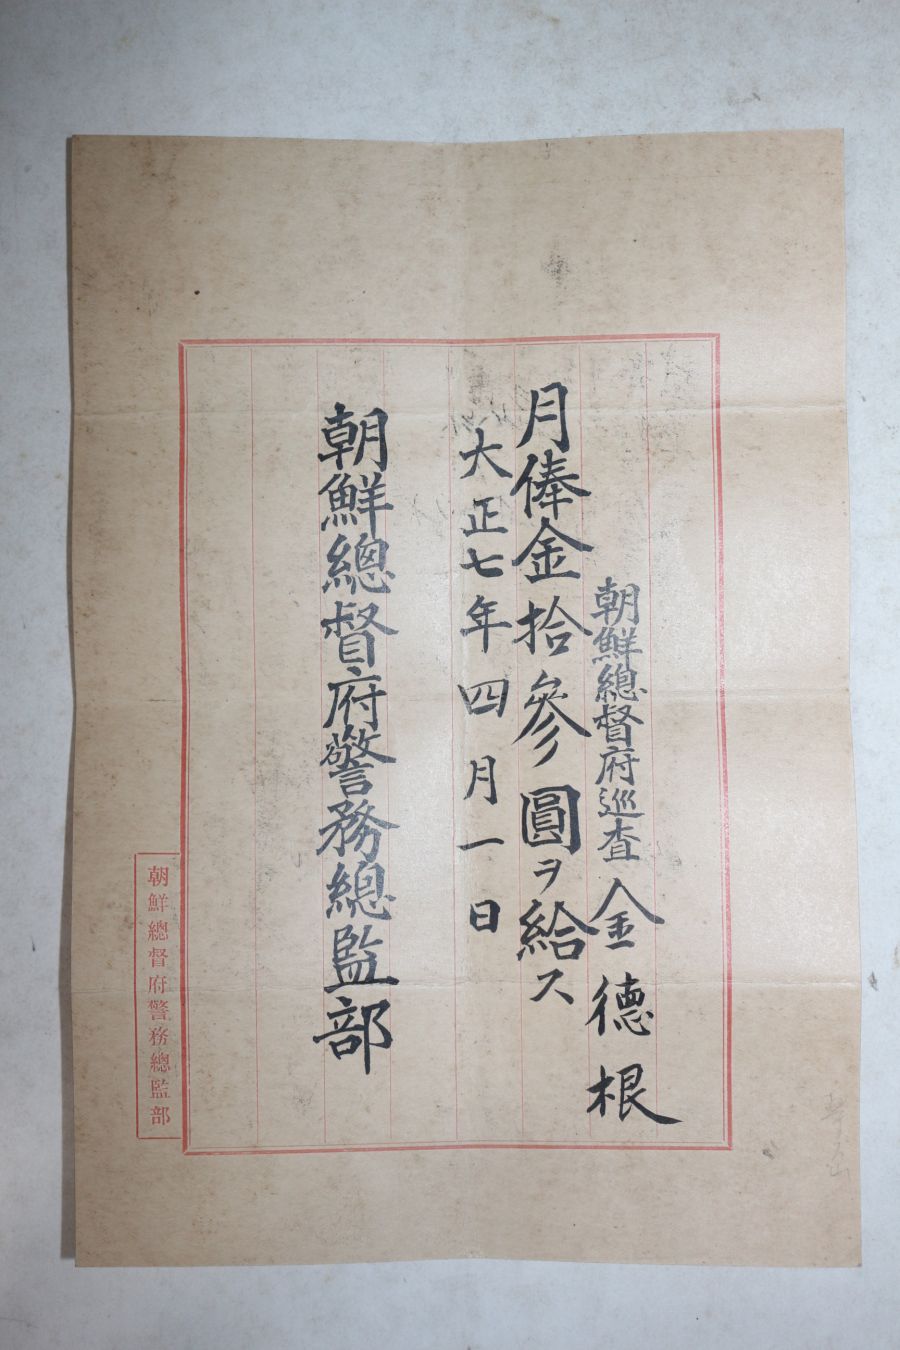 朝鮮總督府巡査 金德根
月俸金拾參圓ヲ給ス
大正七年四月一日
朝鮮總督府警務總監部
朝鮮總督府警務總監部